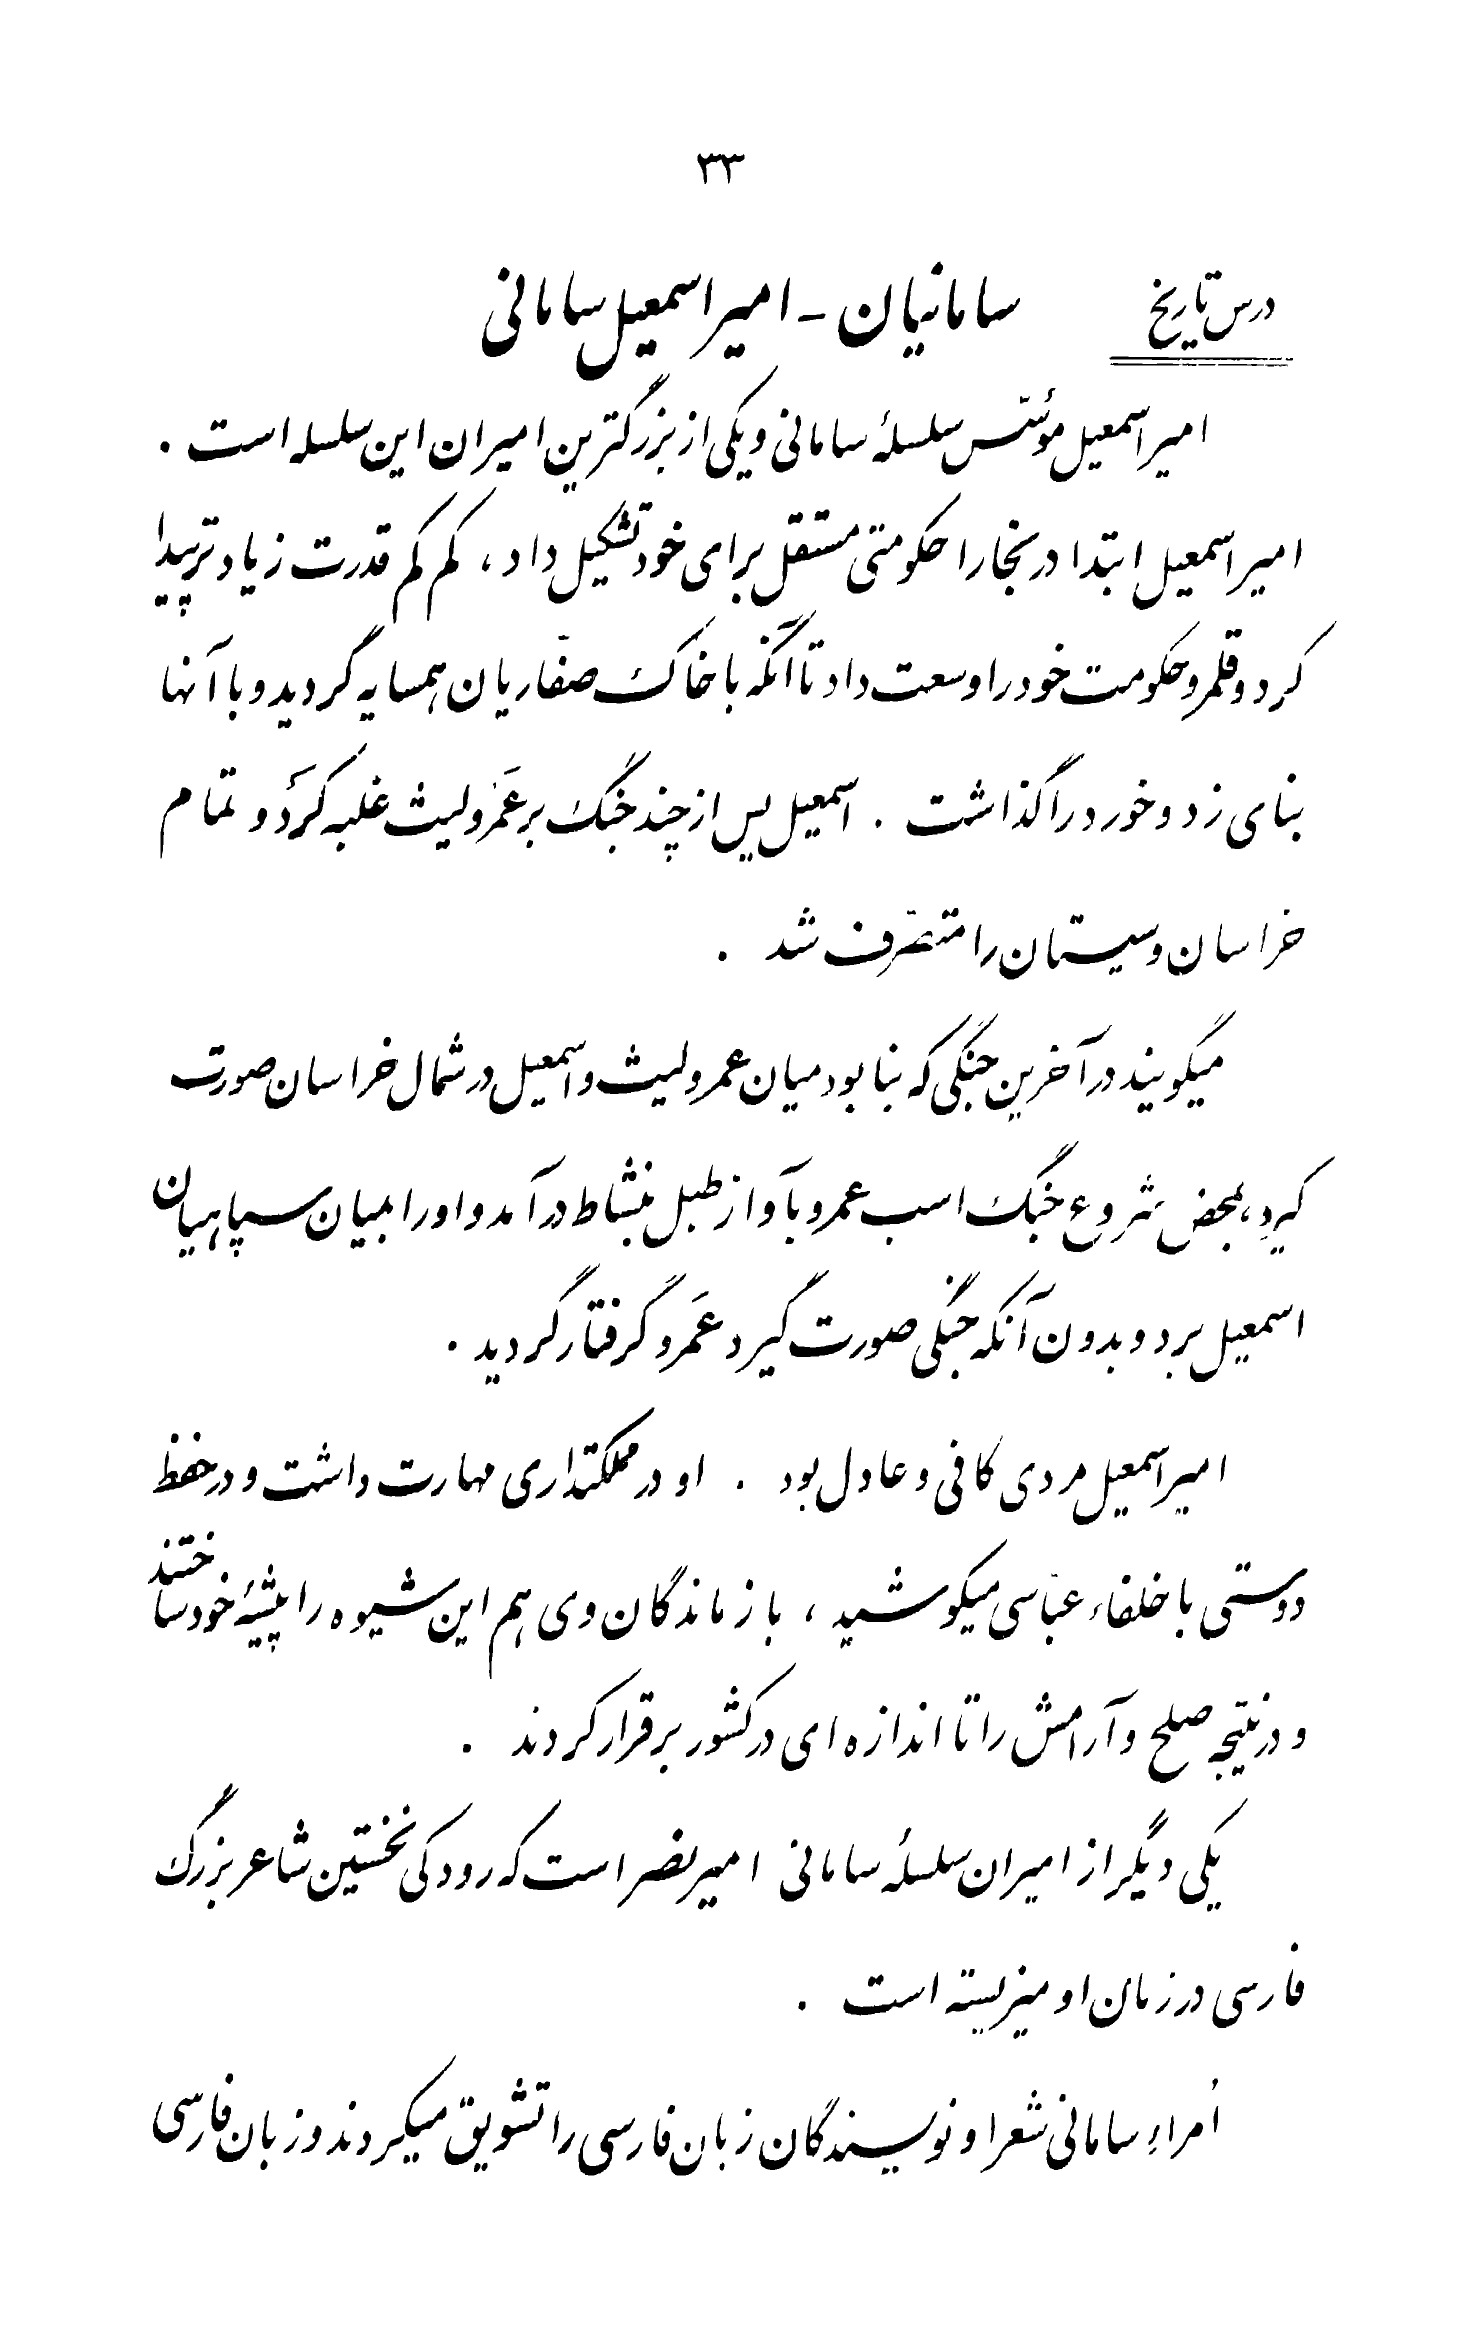 ۳۳
درس تاریخ سامانیان - امیر اسمعیل سامانی
امیر اسمعیل مؤسّس سلسلهٔ سامانی و یکی از بزرگترین امیران این سلسله است .
امیر اسمعیل ابتدا در بخارا حکومتی مستقل برای خود تشکیل داد ، کم کم قدرت زیادتر پیدا
کرد و قلمرو حکومت خود را وسعت داد تا آنکه با خاک صفّاریان همسایه گردید و با آنها
بنای زد و خورد را گذاشت . اسمعیل پس از چند جنگ بر عَمرو لیث غلبه کرد و تمام
خراسان و سیستان را متصّرف شد .
میگویند در آخرین جنگی که بنا بود میان عمرو لیث و اسمعیل در شمال خراسان صورت
گیرد ، بمحض شروع جنگ اسب عمرو بآواز طبل بنشاط درآمد و او را بمیان سپاهیان
اسمعیل برد و بدون آنکه جنگی صورت گیرد عَمرو گرفتار گردید .
امیر اسمعیل مردی کافی و عادل بود . او در مملکتداری مهارت داشت و در حفظ
دوستی با خلفاء عبّاسی میکوشید ، بازماندگان وی هم این شیوه را پیشهٔ خود ساختند
و در نتیجه صلح و آرامش را تا اندازه ای در کشور برقرار کردند .
یکی دیگر از امیران سلسلهٔ سامانی امیر نصر است که رودکی نخستین شاعر بزرگ
فارسی در زمان او میزیسته است .
اُمراءِ سامانی شعرا و نویسندگان زبان فارسی را تشویق میکردند و زبان فارسی